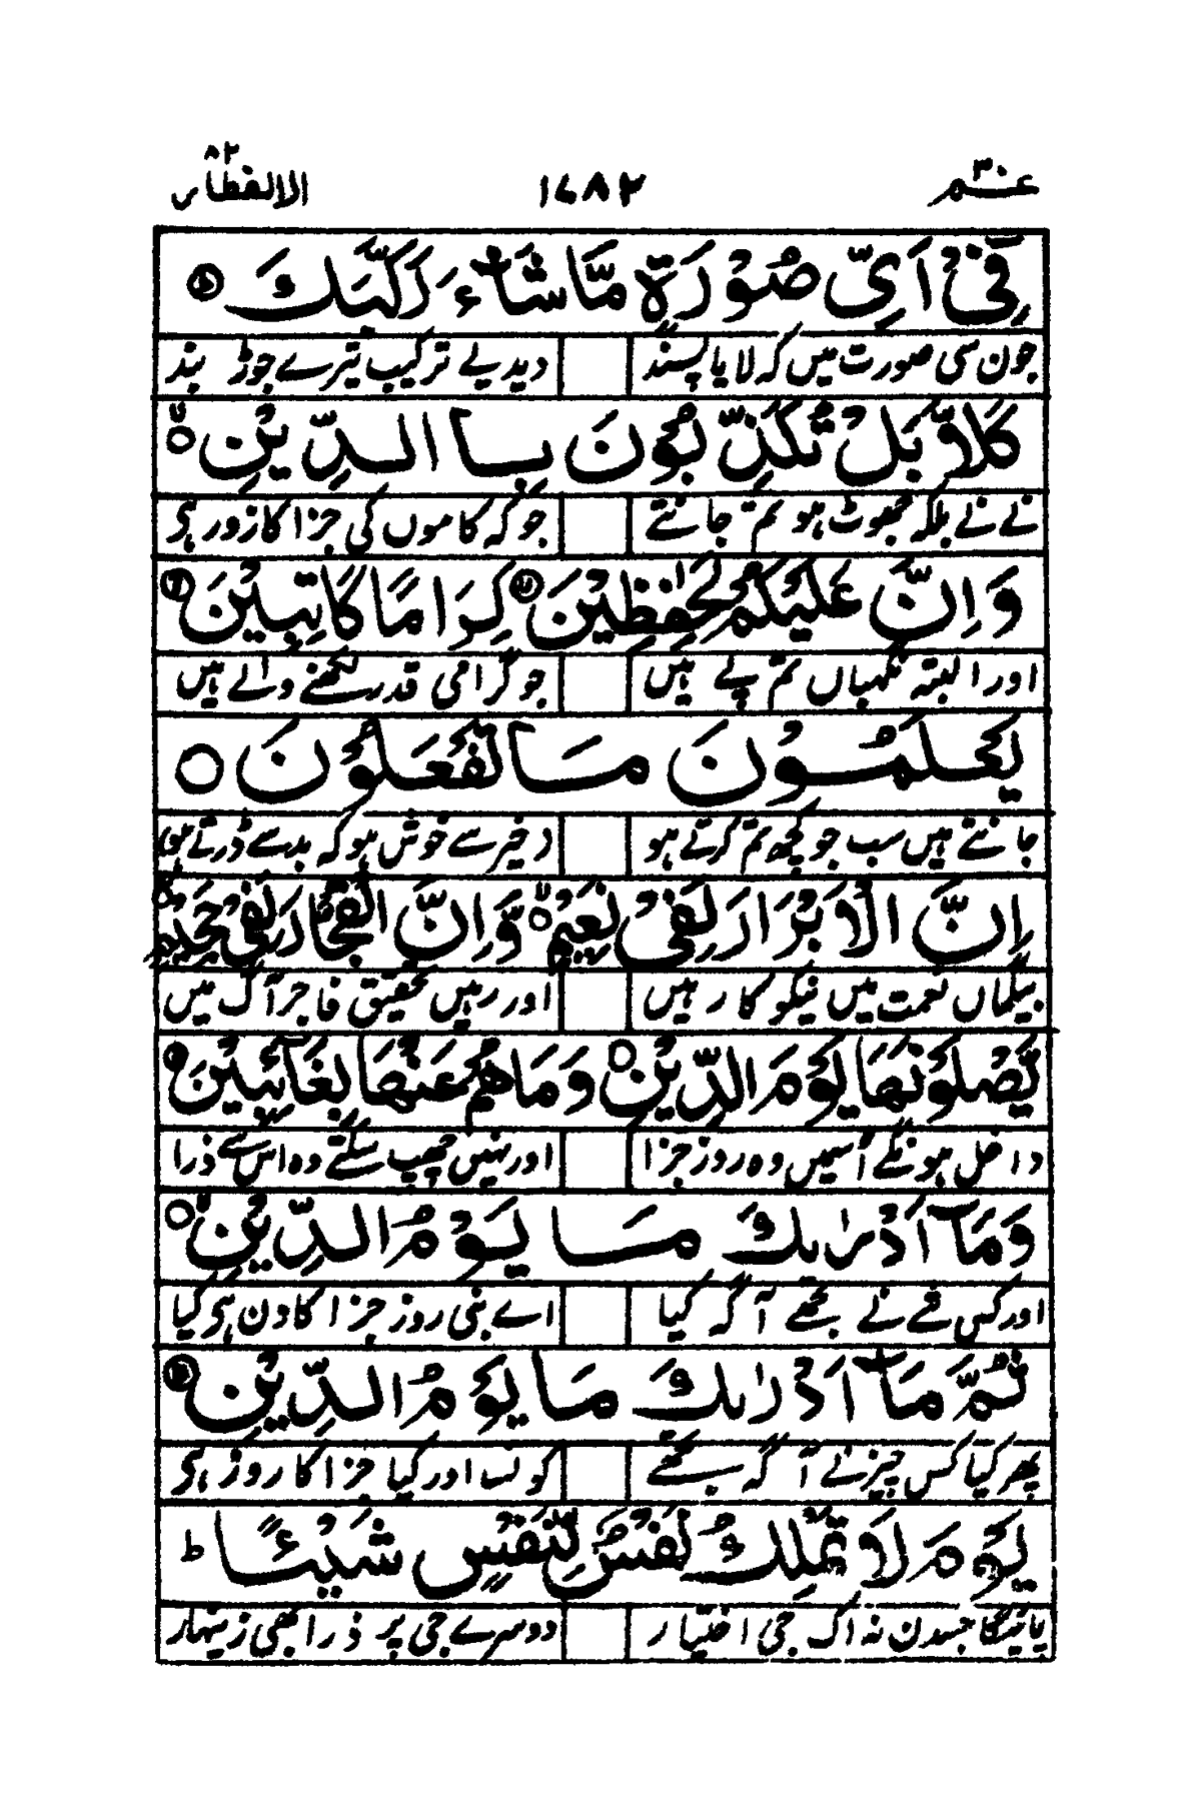 عم ٣٠ ١٤٨٢ الانفطار ٨٢
فِيْٓ اَيِّ صُوْرَةٍ مَّا شَآءَ رَكَّبَكَ ۝
جون سی صورت میں کہ لایا پسند دیدیے ترکیب تیرے جوڑ بند
كَلَّا بَلْ تُكَذِّبُوْنَ بِالدِّيْنِ ۝
نے نے بلکہ جھوٹ ہو تم جانتے جو کہ کاموں کی جزا کا زور ہی
وَاِنَّ عَلَيْكُمْ لَحٰفِظِيْنَ ۝ كِرَامًا كَاتِبِيْنَ ۝
اور البتہ نگہباں تم پے ہیں جو گرامی قدر لکھنے والے ہیں
يَعْلَمُوْنَ مَا تَفْعَلُوْنَ ۝
جانتے ہیں سب جو کچھ تم کرتے ہو خیر سے خوش ہو کہ بد سے ڈرتے ہو
اِنَّ الْاَبْرَارَ لَفِيْ نَعِيْمٍ ۝ وَّاِنَّ الْفُجَّارَ لَفِيْ جَحِيْمٍ ۝
بیگماں نعمت میں نیکو کار ہیں اور رہیں تحقیق فاجر آگ میں
يَّصْلَوْنَهَا يَوْمَ الدِّيْنِ ۝ وَمَا هُمْ عَنْهَا بِغَآئِبِيْنَ ۝
داخل ہونگے اسمیں وہ روز جزا اور نہیں چھپ سکتے وہ اس سے ذرا
وَمَآ اَدْرٰىكَ مَا يَوْمُ الدِّيْنِ ۝
اور کس شے نے تجھے آگہ کیا اے نبی روز جزا کا دن ہی کیا
ثُمَّ مَآ اَدْرٰىكَ مَا يَوْمُ الدِّيْنِ ۝
پھر کیا کس چیز نے آگہ تجھے کونسا اور کیا جزا کا روز ہی
يَوْمَ لَا تَمْلِكُ نَفْسٌ لِّنَفْسٍ شَيْـًٔا ط
جسدن نہ اک جی اختیار دوسرے جی پر ذرا بھی زینہار